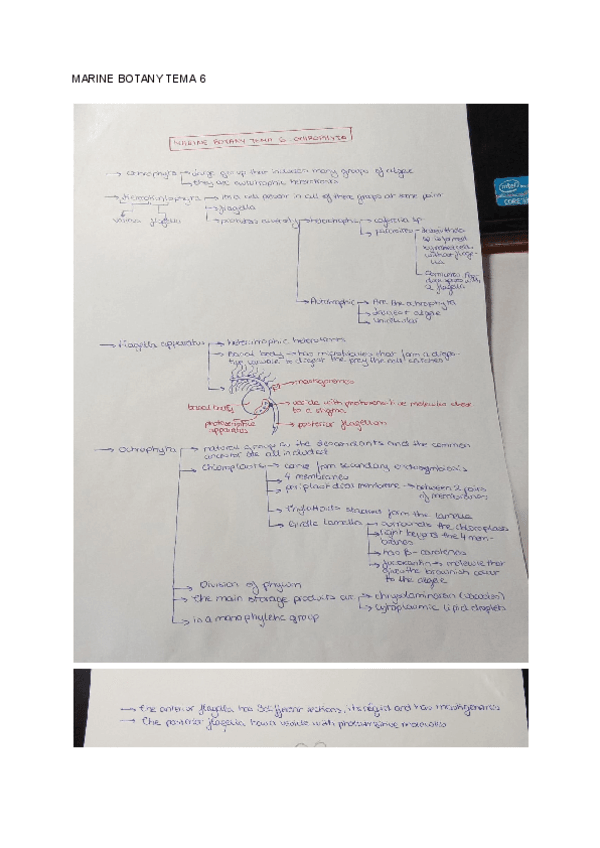 MARINE BOTANY TEMA 6
MARINE BOTANY TEMA 6: OCHROPHYTA
→ Ochrophyta → large group that includes many groups of algae
→ they are autotrophic heterokonts
in all of these groups at some point
→ flagella
→ heterotrophic
without flage-
lla
2 flagella
→ Autotrophic → Are the ochrophyta
→ algae
→ unicellular
intel
CORE
→ Flagella apparatus → heterotrophic heterokonts
→ Basal body → has microtubules that form a diges-
tive vacuole to digest the prey the cell catches
→ mastigonemes
basal body
→ vesicle with photosensitive molecules close
to a stigma
photoreceptive
apparatus
→ posterior flagellum
→ Ochrophyta → natural group bc its descendants and the common
ancestor are all included
→ Chloroplasts → came from secondary endosymbiosis
→ 4 membranes
→ periplastidial membrane → between 2 pairs
of membranes
→ Thylakoids form the lamella
→ Girdle lamella → surrounds the chloroplast
→ light the 4 mem-
branes
→ has β-carotenes
→ fucoxantin → molecule that
gives the brownish color
to the algae
→ Division or phylum
→ The main storage products are → chrysolaminaran (vacuoles)
→ cytoplasmic lipid droplets
→ is a monophyletic group
→ The anterior flagella has 3 different sections, its rigid and has mastigonemes
→ The posterior flagella has a vesicle with photosensitive molecules